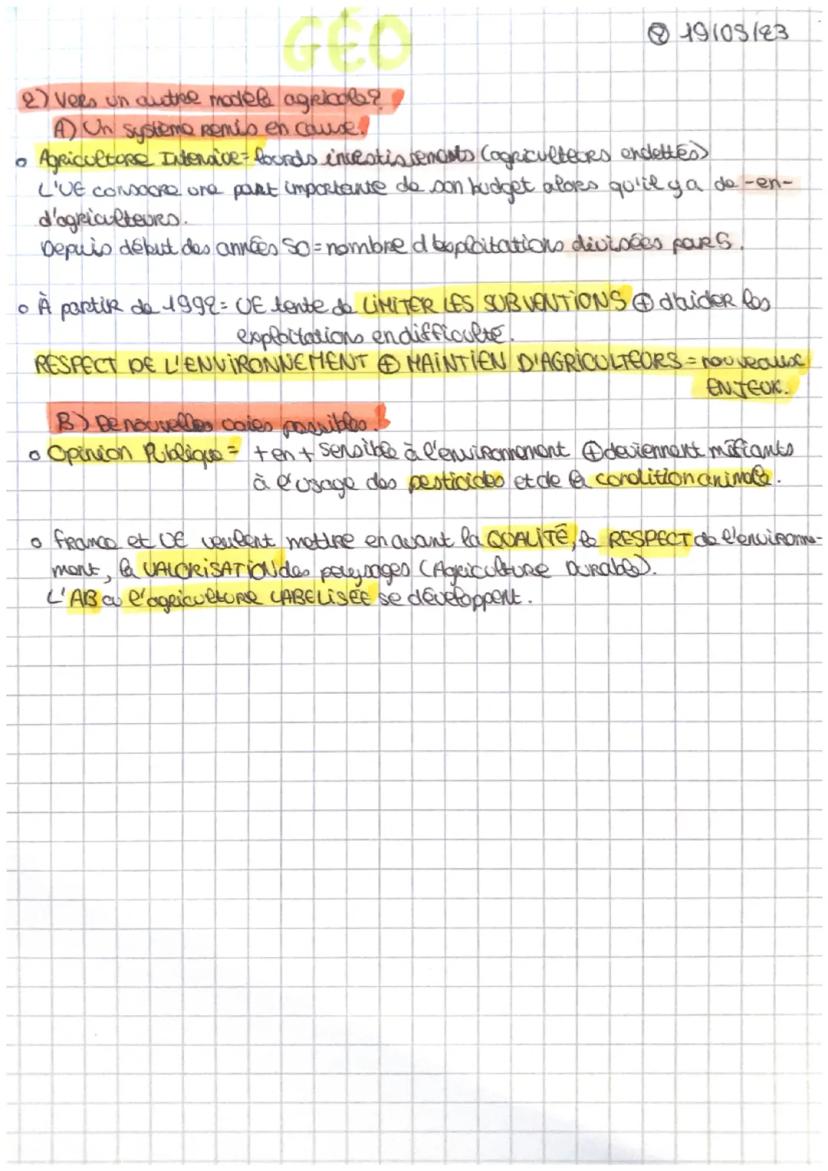 GÉO
② 19/09/23
2) Vers un autre modèle agricole?
A) Un système remis en cause.
Agriculture Intensive = lourds investissements (agriculteurs endettés)
L'UE consacre une part importante de son budget alors qu'il y a de -en-
d'agriculteurs.
Depuis début des années 50 = nombre d'exploitations divisées par 5.
À partir de 1992 = UE tente de LIMITER LES SUBVENTIONS ⊕ d'aider les
exploitations en difficulté.
RESPECT DE L'ENVIRONNEMENT ⊕ MAINTIEN D'AGRICULTEURS = nouveaux
ENJEUX.
B) De nouvelles voies possibles.
Opinion Publique = + en + sensible à l'environnement ⊕ deviennent méfiants
à l'usage des pesticides et de la condition animale.
France et UE veulent mettre en avant la QUALITÉ, le RESPECT de l'environne-
ment, la VALORISATION des paysages (Agriculture Durable).
L'AB ou l'agriculture LABELISÉE se développent.